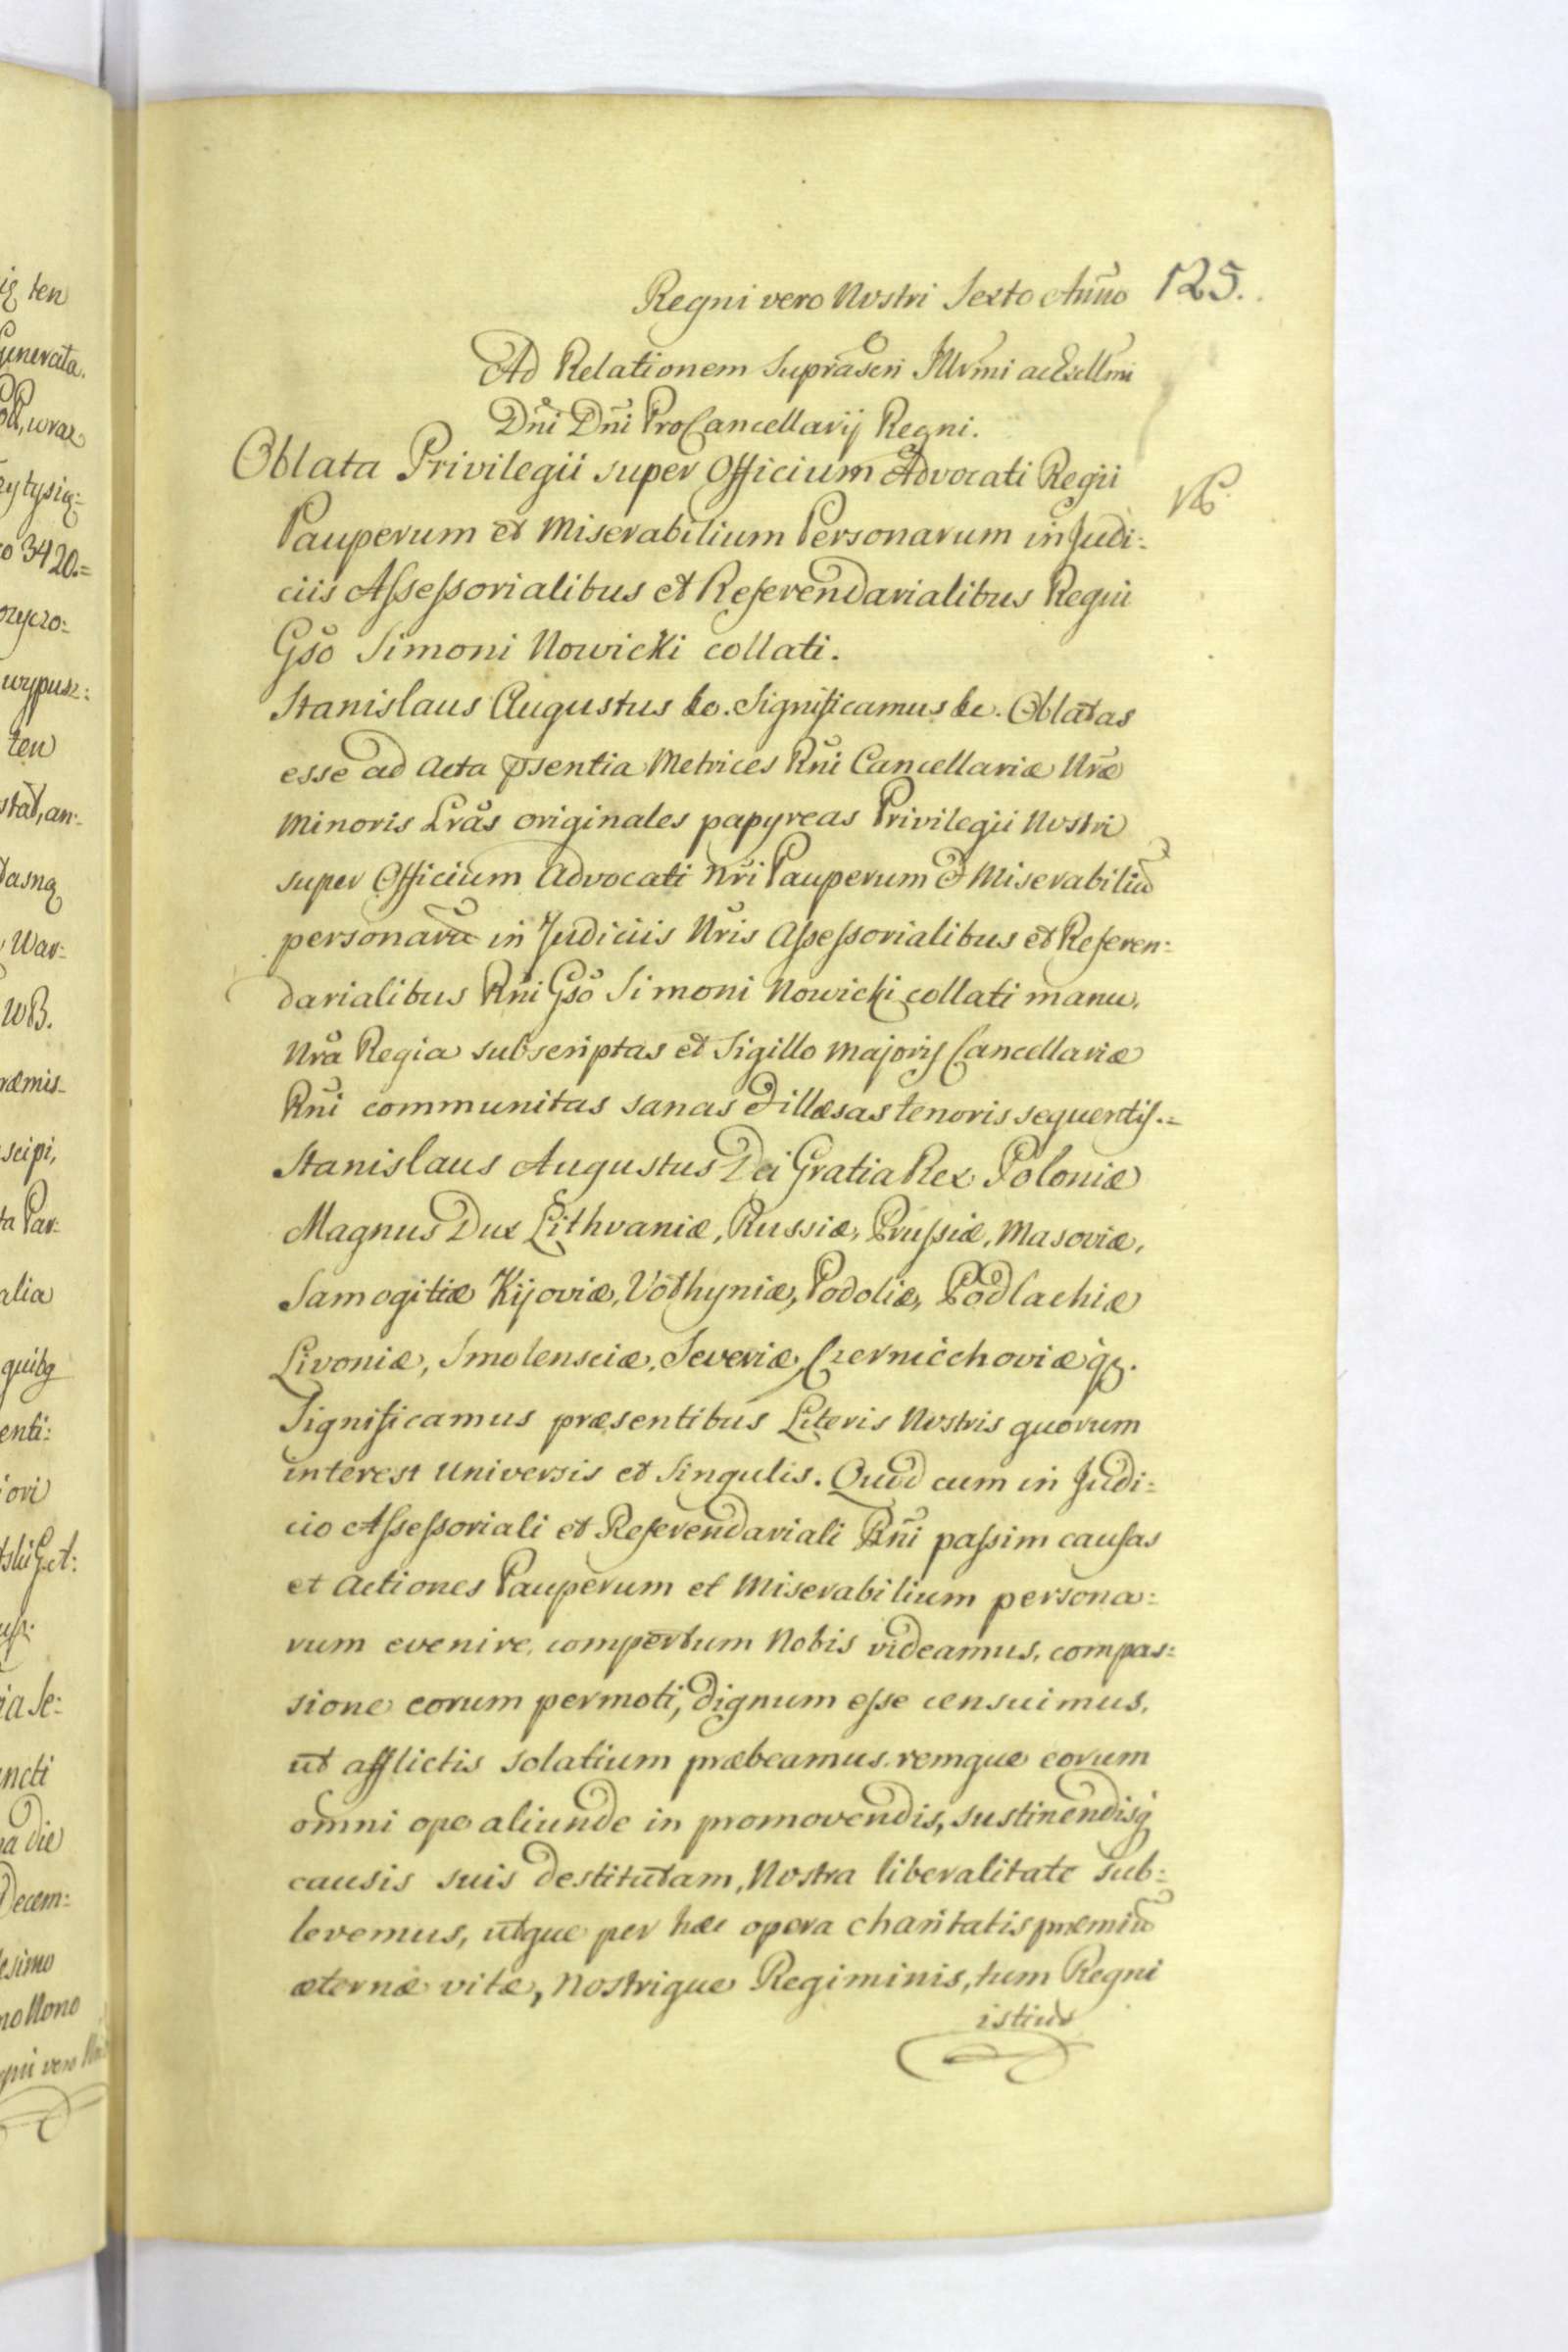 Regni vero Nostri Sexto Anno 125.
Ad Relationem Suprascri Illrmi ac Excllmi
Dni Dni ProCancellarij Regni.
Oblata Privilegii super Officium Advocati Regii
Pauperum et Miserabilium Personarum in Judi:
ciis Assessorialibus et Referendarialibus Regni
Gso Simoni Nowicki collati.
Stanislaus Augustus &c. Significamus &c. Oblatas
esse ad Acta psentia Metrices Rni Cancellariæ Nræ
Minoris Lras originales papyreas Privilegii Nostri
super Officium Advocati Nri Pauperum & Miserabiliu
personaru in Judiciis Nris Assessorialibus et Referen:
darialibus Rni Gso Simoni Nowicki collati manu
Nra Regia subscriptas et Sigillo Majoris Cancellariæ
Rni communitas sanas & illæsas tenoris sequentis.=
Stanislaus Augustus Dei Gratia Rex Poloniæ
Magnus Dux Lithvaniæ, Russiæ, Prussiæ, Masoviæ,
Samogitiæ Kijoviæ, Volhyniæ, Podoliæ, Podlachiæ
Livoniæ, Smolensciæ, Severiæ, Czerniechoviæ q3.
Significamus præsentibus Literis Nostris quorum
interest Universis et Singulis. Quod cum in Judi:
cio Assessoriali et Referendariali Rni passim causas
et Actiones Pauperum et Miserabilium persona:
rum evenire, compertum Nobis videamus, compas:
sione eorum permoti, dignum esse censuimus,
ut afflictis solatium præbeamus remque eorum
omni ope aliunde in promovendis, sustinendisq
causis suis destitutam, Nostra liberalitate sub:
levemus, utque per hæc opera charitatis præmiu
æternæ vitæ, Nostrique Regiminis, tum Regni
istius